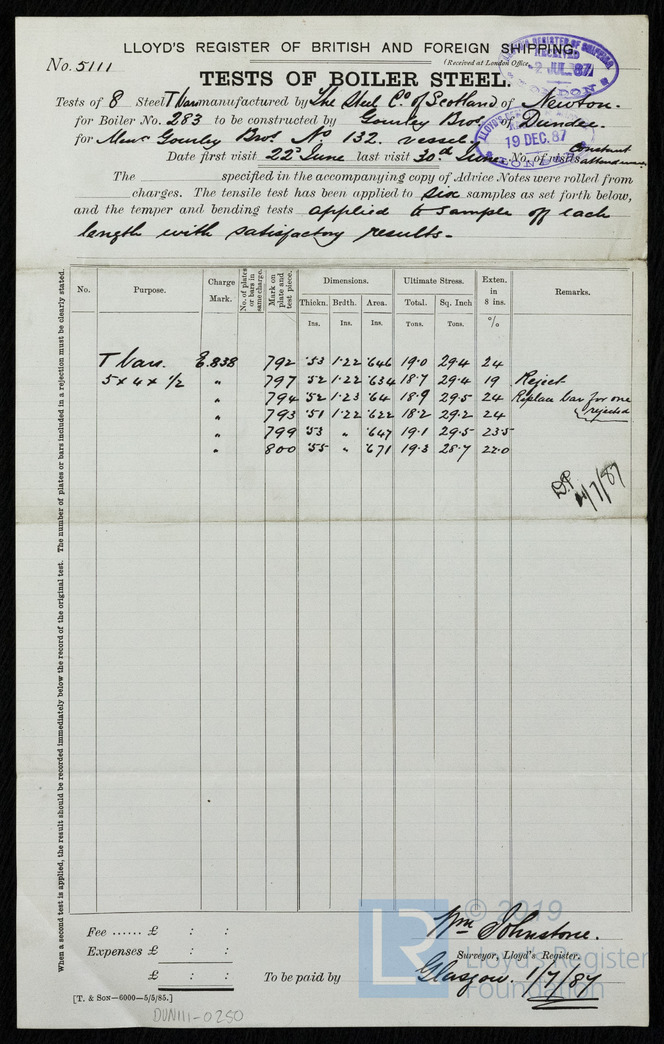 LLOYD'S REGISTER OF BRITISH AND FOREIGN SHIPPING.
No. 5111
(Received at London Office
TESTS OF BOILER STEEL.
Tests of 8 Steel T bars manufactured by The Steel Co. of Scotland of Newton.
for Boiler No. 283 to be constructed by Gourlay Bros. of Dundee.
for Messrs Gourlay Bros. No 132. vessel.
Date first visit 22d June last visit 30th June No. of visits Constant attendance
The specified in the accompanying copy of Advice Notes were rolled from
charges. The tensile test has been applied to six samples as set forth below,
and the temper and bending tests applied to sample off each
length with satisfactory results.
LLOYD'S REGISTER OF SHIPPING
RECEIVED
2 JUL. 87
LONDON
19 DEC. 87
LONDON
No. Purpose. Charge Mark. No. of plates or bars in same charge. Mark on plate and test piece. Dimensions. Ultimate Stress. Exten. in 8 ins. Remarks.
Thickn. Brdth. Area. Total. Sq. Inch
Ins. Ins. Ins. Tons. Tons. %
T bars. E.838 792 .53 1.22 .646 19.0 29.4 24
5 x 4 x 1/2 " 797 .52 1.22 .634 18.7 29.4 19 Reject
" 794 .52 1.23 .64 18.9 29.5 24 Replace bar for one
" 793 .51 1.22 .622 18.2 29.2 24 rejected
" 799 .53 " .647 19.1 29.5 23.5
" 800 .55 " .671 19.3 28.7 22.0
/7/87
When a second test is applied, the result should be recorded immediately below the record of the original test. The number of plates or bars included in a rejection must be clearly stated.
Fee ...... £ : :
Expenses £ : :
£ : :
To be paid by
Wm Johnstone.
Surveyor, Lloyd's Register.
Glasgow. 1/7/87
[T. & SON—6000—5/5/85.]
DUN111-0250
LR
© 2019
Lloyd's Register
Foundation